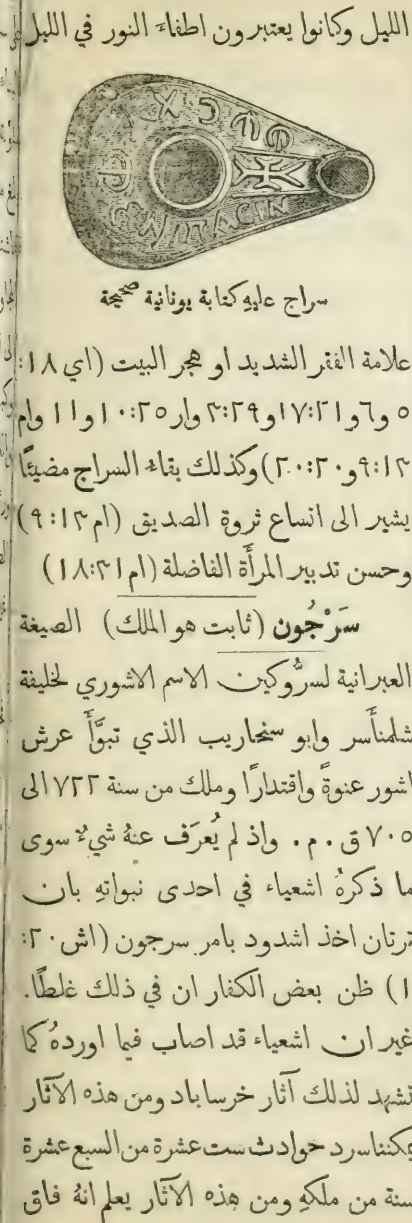 الليل وكانوا يعتبرون اطفاءَ النور في الليل
سراج عليهِ كتابة يونانية صحيحة
علامة الفقر الشديد او هجر البيت (اي ١٨:
٥ و٦ و٢١:١٧ و٢٩:٣ وار ٢٥:١٠ و١١ وام
١٣:٩ و٢٠:٢٠) وكذلك بقاءُ السراج مضيئًا
يشير الى اتساع ثروة الصديق (ام ١٣:٩)
وحسن تدبير المرأَة الفاضلة (ام ٣١:١٨)
سَرْجُون (ثابت هو الملك) الصيغة
العبرانية لسرُّوكين الاسم الاشوري لخليفة
شلمنأَسر وابو سنحاريب الذي تبوَّأَ عرش
اشور عنوةً واقتدارًا وملك من سنة ٧٢٢ الى
٧٠٥ ق . م . واذ لم يُعرَف عنهُ شيءٌ سوى
ما ذكرهُ اشعياء في احدى نبواتهِ بان
ترتان اخذ اشدود بامر سرجون (اش ٢٠:
١) ظن بعض الكفار ان في ذلك غلطًا.
غير ان اشعياء قد اصاب فيما اوردهُ كما
تشهد لذلك آثار خرساباد ومن هذه الآثار
يمكننا سرد حوادث ست عشرة من السبع عشرة
سنة من ملكهِ ومن هذه الآثار يعلم انهُ فاق